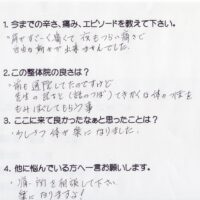 1. 今までの辛さ、痛み、エピソードを教えて下さい。
・肩がすごーく痛くて 夜もつらい痛さで
自由な動きが出来ませんでした。
2. この整体院の良さは？
・前も通院してたのですけど
先生の話など(話のつぼ)てきかくな体の状態を
もみほぐしてもらう事
3. ここに来て良かったなぁと思ったことは？
・少しずつ体が楽になりました。
4. 他に悩んでいる方へ一言お願いします。
・痛い所を相談して下さい
楽になりますよ！